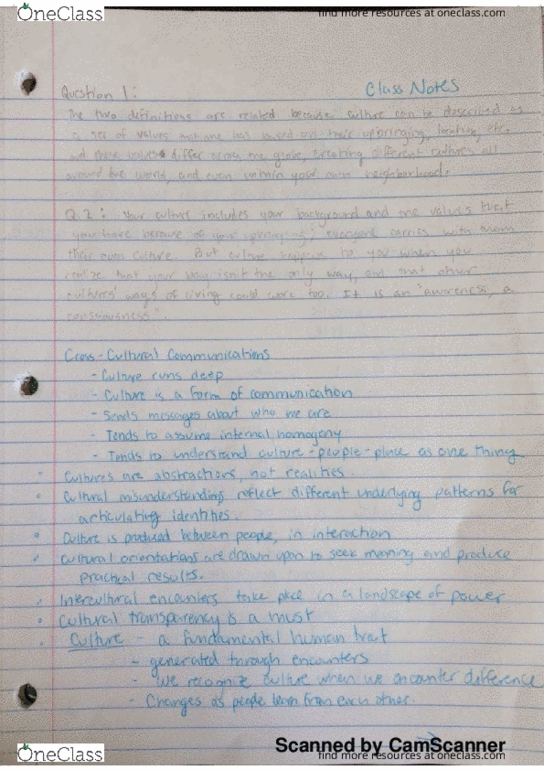 OneClass
find more resources at oneclass.com
Class Notes
Question 1:
The two definitions are related because culture can be described as
a set of values that one has based on their upbringing, location, etc.
and these values differ across the globe, creating different cultures all
around the world, and even within your own neighborhood.
Q.2: Your culture includes your background and the values that
you have because of your upbringing; everyone carries with them
their own culture. But culture happens to you when you
realize that your way isn't the only way, and that other
cultures' ways of living could work too. It is an "awareness, a
consciousness".
Cross-Cultural Communications
- Culture runs deep
- Culture is a form of communication
- Sends messages about who we are
- Tends to assume internal homogeny
- Tends to understand culture-people-place as one thing
• Cultures are abstractions, not realities.
• Cultural misunderstandings reflect different underlying patterns for
articulating identities.
• Culture is produced between people, in interaction
• Cultural orientations are drawn upon to seek meaning and produce
practical results.
• Intercultural encounters take place in a landscape of power
• Cultural transparency is a must
• Culture - a fundamental human trait
- generated through encounters
- We recognize culture when we encounter difference
- Changes as people learn from each other.
OneClass
Scanned by CamScanner
find more resources at oneclass.com